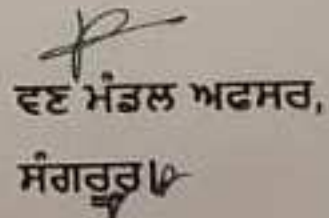 ਵਣ ਮੰਡਲ ਅਫਸਰ,
ਸੰਗਰੂਰ